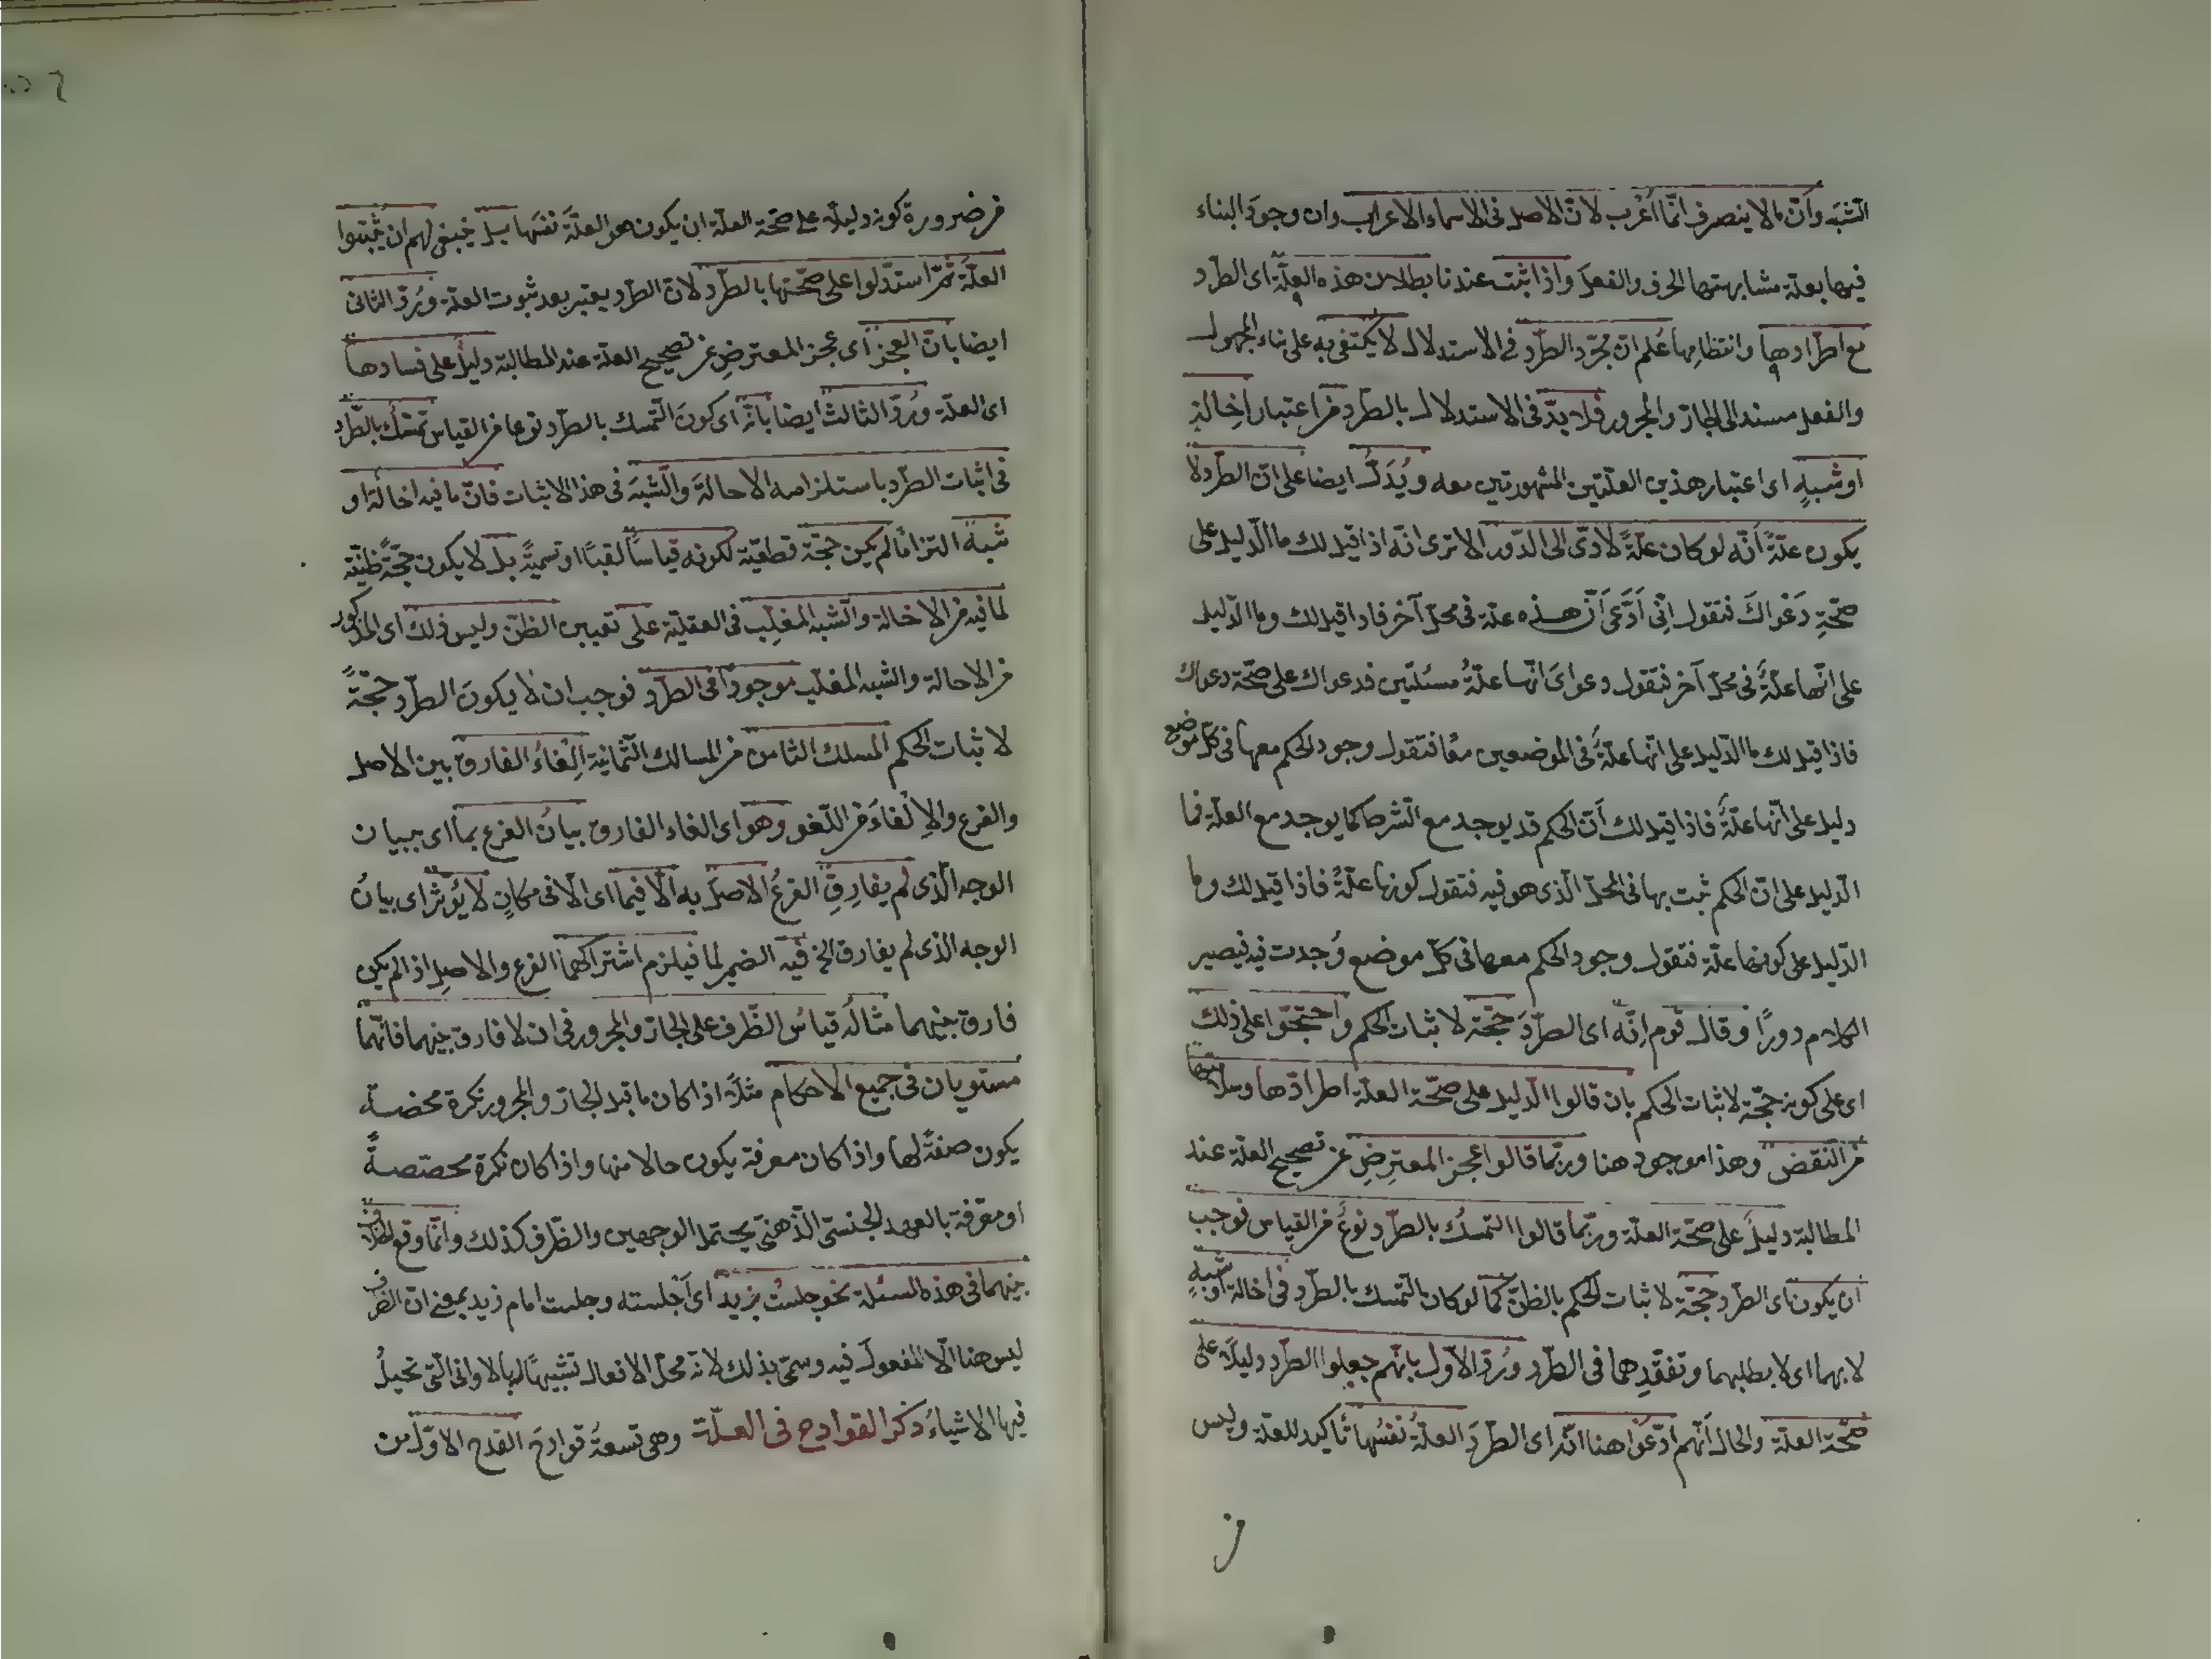 الشبه وانّ ما لا ينصرف انّما اُعْرب لانّ الاصل فى الاسماء الاعراب وان وجود البناء
فيها بعلّة مشابهتها الحرف والفعل واذا ثبت عندنا بطلان هذه العلّة اى الطرد
مع اطرادها وانتظامها عُلم انّ مجرّد الطرد فى الاستدلال لا يكتفى به على بناء المجهول
والفعل مسند الى الجارّ والمجرور فلا بدّ فى الاستدلال بالطرد من اعتبار اِخالةٍ
او شبهٍ اى اعتبار هذين العلّتين المشهورتين معه ويُدَلُّ ايضا على انّ الطرد لا
يكون علّةً اَنّه لو كان علّةً لادّى الى الدّور الا ترى انّه اذا قيل لك ما الدّليل على
صحّةِ دَعْواكَ فتقول اِنّى اَدَّعى اَنّ هذه علّة فى محلّ آخر فاذا قيل لك وما الدّليل
على انّها علّةٌ فى محلّ آخر فتقول دعواىَ انّها علّةُ مسئلتين فدعواك على صحّة دعواك
فاذا قيل لك ما الدّليل على انّها علّةٌ فى الموضعين معًا فتقول وجود الحكم معها فى كلّ موضع
دليل على انّها علّةٌ فاذا قيل لك اَنّ الحكم قد يوجد مع الشرط كما يوجد مع العلّة فما
الدّليل على انّ الحكم ثبت بها فى المحلّ الّذى هو فيه فتقول كونها علّةً فاذا قيل لك وما
الدّليل على كونها علّة فتقول وجود الحكم معها فى كلّ موضع وُجدت فيه فيصير
الكلام دورًا وقال قوم اِنّه اى الطردَ حجّة لاثبات الحكم واحتجّوا على ذلك
اى على كونه حجّة لاثبات الحكم بان قالوا الدّليل على صحّة العلّة اطرادها وسلامتها
من النقض وهذا موجود هنا وربّما قالوا عجز المعترِضِ عن تصحيح العلّة عند
المطالبة دليل على صحّة العلّة وربّما قالوا التمسّك بالطرد نوعٌ من القياس فوجب
ان يكون اى الطرد حجّة لاثبات الحكم بالظنّ كما لو كان التمسّك بالطرد فى اخالة او شبهٍ
لا بهما اى لا بطلبهما وتفقّدهما فى الطرد ورُدّ الاوّل بانّهم جعلوا الطرد دليلا على
صحّة العلّة والحال اَنّهم ادّعوا هنا انّه اى الطردَ العلّةُ نفسُها تأكيد للعلّة وليس
من
من ضرورة كونه دليلا على صحّة العلّة ان يكون هو العلّةَ نفسَها بل ينبغى لهم ان يثبتوا
العلّة ثمّ استدلّوا على صحّتها بالطرد لانّ الطرد يعتبر بعد ثبوت العلّة ورُدّ الثانى
ايضا بانّ العجز اى عجز المعترضِ عن تصحيح العلّة عند المطالبة دليل على فسادها
اى العلّة ورُدّ الثالث ايضا بانّه اى كونَ التّمسك بالطرد نوعا من القياس تمسّك بالطرد
فى اثبات الطرد باستلزامه الاحالةَ والشبهَ فى هذا الاثبات فانّ ما فيه اخالة او
شبه التزاما لم يكن حجّة قطعيّة لكونه قياساً لقبًا او تسميةً بل لا يكون حجّةً ظنّيّة
لما فيه من الاخالة والشبه المغلِّب فى العقليّة على تعيين الظنّ وليس ذلك اى المذكور
من الاحالة والشبه المغلّب موجودا فى الطرد فوجب ان لا يكونَ الطرد حجّةً
لاثبات الحكم المسلك الثامن من المسالك الثّمانية اِلغاءُ الفارق بين الاصل
والفرع والاِلْغاءُ من اللّغو وهو اى الغاء الفارق بيانُ الفرع بما اى ببيان
الوجه الّذى لم يفارِقِ الفرعُ الاصلَ به الّا فيما اى الّا فى مكانٍ لا يُؤثر اى بيانُ
الوجه الذى لم يفارق الخ فيه الضمير لما فيلزم اشتراكهما الفرع والاصلِ اذ لم يكن
فارق بينهما مثالُه قياسُ الظّرف على الجارّ والمجرور فى ان لا فارق بينهما فانّهما
مستويان فى جميع الاحكام مثلًا اذا كان ما قبل الجارّ والمجرور نكرة محضة
يكون صفةً لها واذا كان معرفة يكون حالا منها واذا كان نكرة مخصّصةً
او معرّفة بالعهد الجنسىّ الذّهنىّ يحتمل الوجهين والظّرف كذلك وانّما وقع الخلاف
بينهما فى هذه المسئلة نحو جلستُ بزيد اى اَجْلسته وجلست امام زيد بمعنى انّ الظرف
ليس هنا الّا المفعول فيه وسمّى بذلك لانّه محلّ الافعال تشبيهًا لها بالاوانى الّتى تحيلُ
فيها الاشياءُ ذكر القوادح فى العلّة وهى تسعةُ قوادحَ القدح الاوّل من